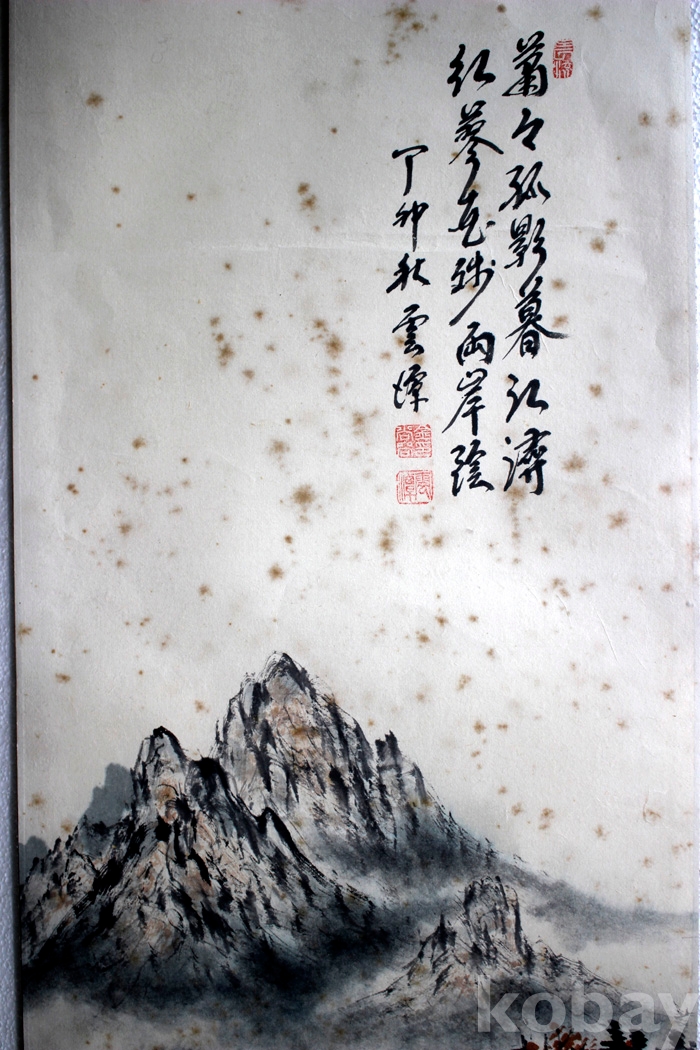 蕭々孤影暮江濱
紅蓼花殘兩岸陰
丁卯秋 雲潭
kobay